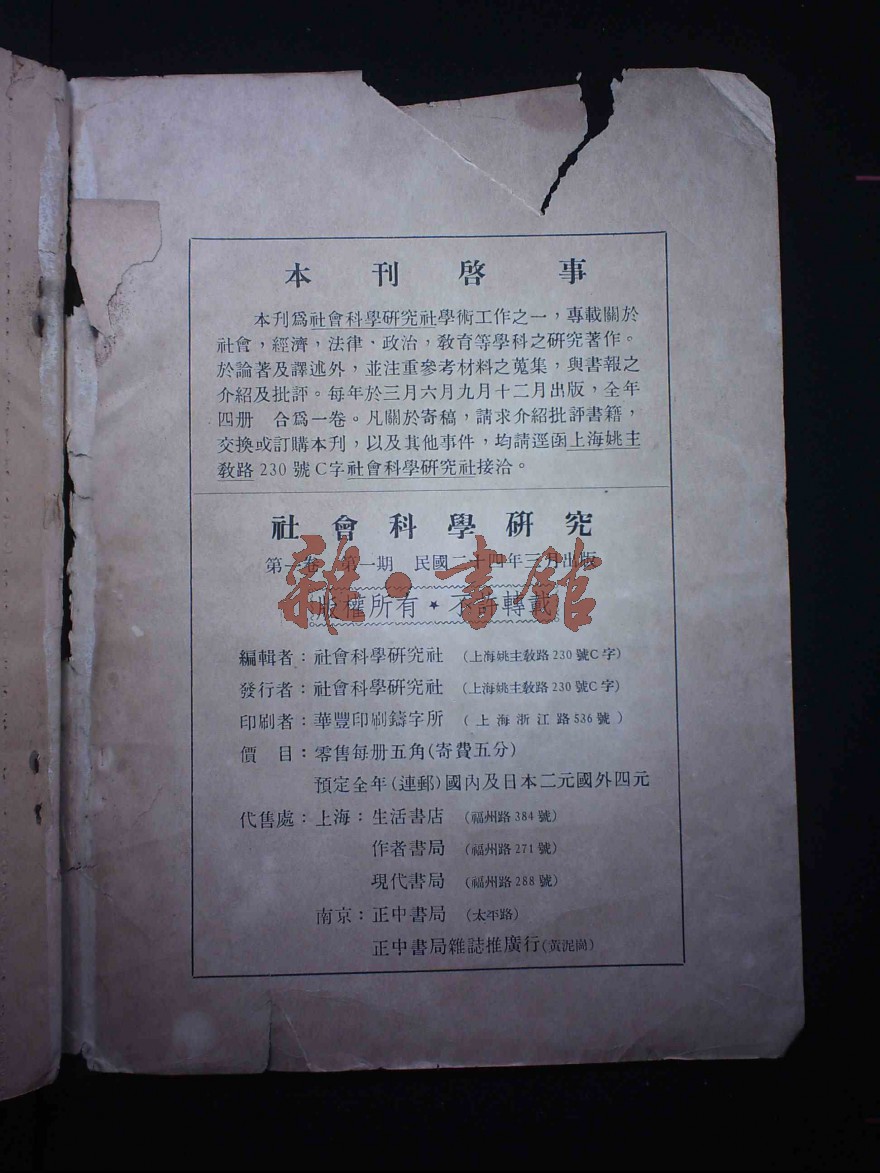 本刊啓事
本刊爲社會科學研究社學術工作之一，專載關於
社會，經濟，法律、政治，敎育等學科之研究著作。
於論著及譯述外，並注重參考材料之蒐集，與書報之
介紹及批評。每年於三月六月九月十二月出版，全年
四册　合爲一卷。凡關於寄稿，請求介紹批評書籍，
交換或訂購本刊，以及其他事件，均請逕函上海姚主
敎路230號C字社會科學研究社接洽。
社會科學研究
第一卷　第一期　民國二十四年三月出版
版權所有★不許轉載
雜·書館
編輯者：社會科學研究社（上海姚主敎路230號C字）
發行者：社會科學研究社（上海姚主敎路230號C字）
印刷者：華豐印刷鑄字所（上海浙江路536號）
價　目：零售每册五角(寄費五分)
預定全年(連郵)國內及日本二元國外四元
代售處：上海：生活書店（福州路384號）
作者書局（福州路271號）
現代書局（福州路288號）
南京：正中書局（太平路）
正中書局雜誌推廣行(黃泥崗)